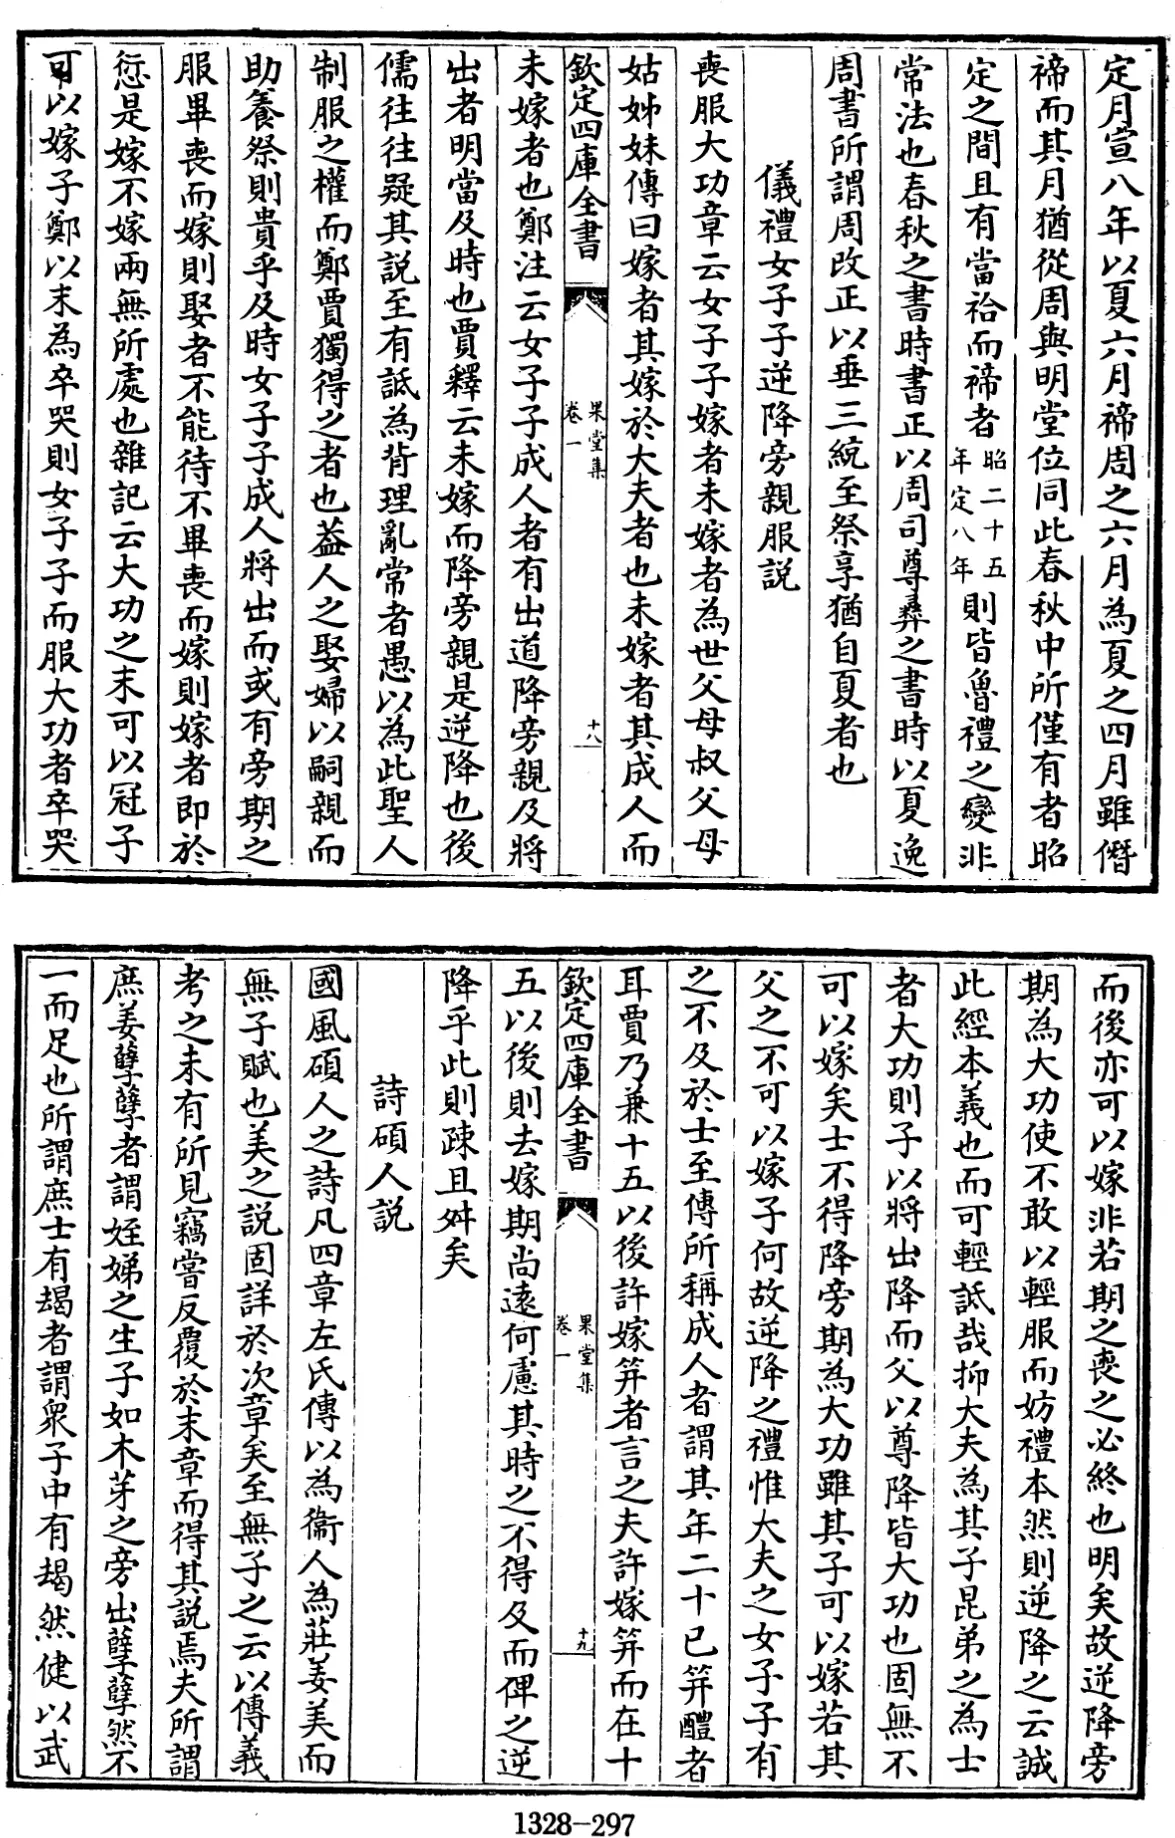 定月宣八年以夏六月禘周之六月為夏之四月雖僭
禘而其月猶從周與明堂位同此春秋中所僅有者昭
定之間且有當祫而禘者昭二十五年定八年則皆魯禮之變非
常法也春秋之書時書正以周司尊彞之書時以夏逸
周書所謂周改正以垂三統至祭享猶自夏者也
儀禮女子子逆降旁親服説
喪服大功章云女子子嫁者未嫁者為世父母叔父母
姑姊妹傳曰嫁者其嫁於大夫者也未嫁者其成人而
欽定四庫全書
果堂集
卷一
十八
未嫁者也鄭注云女子子成人者有出道降旁親及將
出者明當及時也賈釋云未嫁而降旁親是逆降也後
儒往往疑其説至有詆為背理亂常者愚以為此聖人
制服之權而鄭賈獨得之者也葢人之娶婦以嗣親而
助養祭則貴乎及時女子子成人將出而或有旁期之
服畢喪而嫁則娶者不能待不畢喪而嫁則嫁者即於
愆是嫁不嫁兩無所處也雜記云大功之末可以冠子
可以嫁子鄭以末為卒哭則女子子而服大功者卒哭
而後亦可以嫁非若期之喪之必終也明矣故逆降旁
期為大功使不敢以輕服而妨禮本然則逆降之云誠
此經本義也而可輕詆哉抑大夫為其子昆弟之為士
者大功則子以將出降而父以尊降皆大功也固無不
可以嫁矣士不得降旁期為大功雖其子可以嫁若其
父之不可以嫁子何故逆降之禮惟大夫之女子子有
之不及於士至傳所稱成人者謂其年二十已笄醴者
耳賈乃兼十五以後許嫁笄者言之夫許嫁笄而在十
欽定四庫全書
果堂集
卷一
十九
五以後則去嫁期尚遠何慮其時之不得及而俾之逆
降乎此則疎且舛矣
詩碩人説
國風碩人之詩凡四章左氏傳以為衞人為莊姜美而
無子賦也美之説固詳於次章矣至無子之云以傳義
考之未有所見竊嘗反覆於末章而得其説焉夫所謂
庶姜孽孽者謂姪娣之生子如木芽之旁出孽孽然不
一而足也所謂庶士有朅者謂衆子中有朅然健以武
1328-297